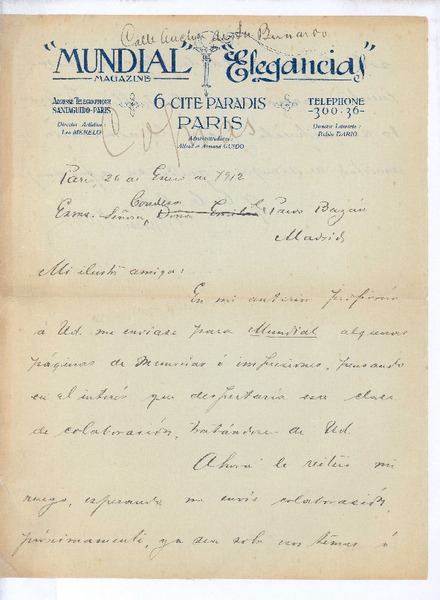 Calle Ancha de Sn Bernardo
"MUNDIAL" "Elegancias"
MAGAZINE
ADRESSE TELEGRAPHIQUE
SANTAGUIDO-PARIS
6 CITÉ PARADIS
TELEPHONE
-300-36-
Director Artístico:
Leo MERELO
PARIS
Director Literario:
Rubén DARÍO
Administradores:
Alfred et Armand GUIDO
París 26 de Enero de 1912
Condesa
Exma. Señora Doña Emilia Pardo Bazán
Madrid
Mi ilustre amiga:
En mi anterior
á Ud. me enviase para Mundial algunas
páginas de memorias ó impresiones, pensando
en el interés que despertaría esa clase
de colaboración, tratándose de Ud.
Ahora le reitero mi
ruego, esperando me envíe colaboración
próximamente, ya sea sobre esos temas ó